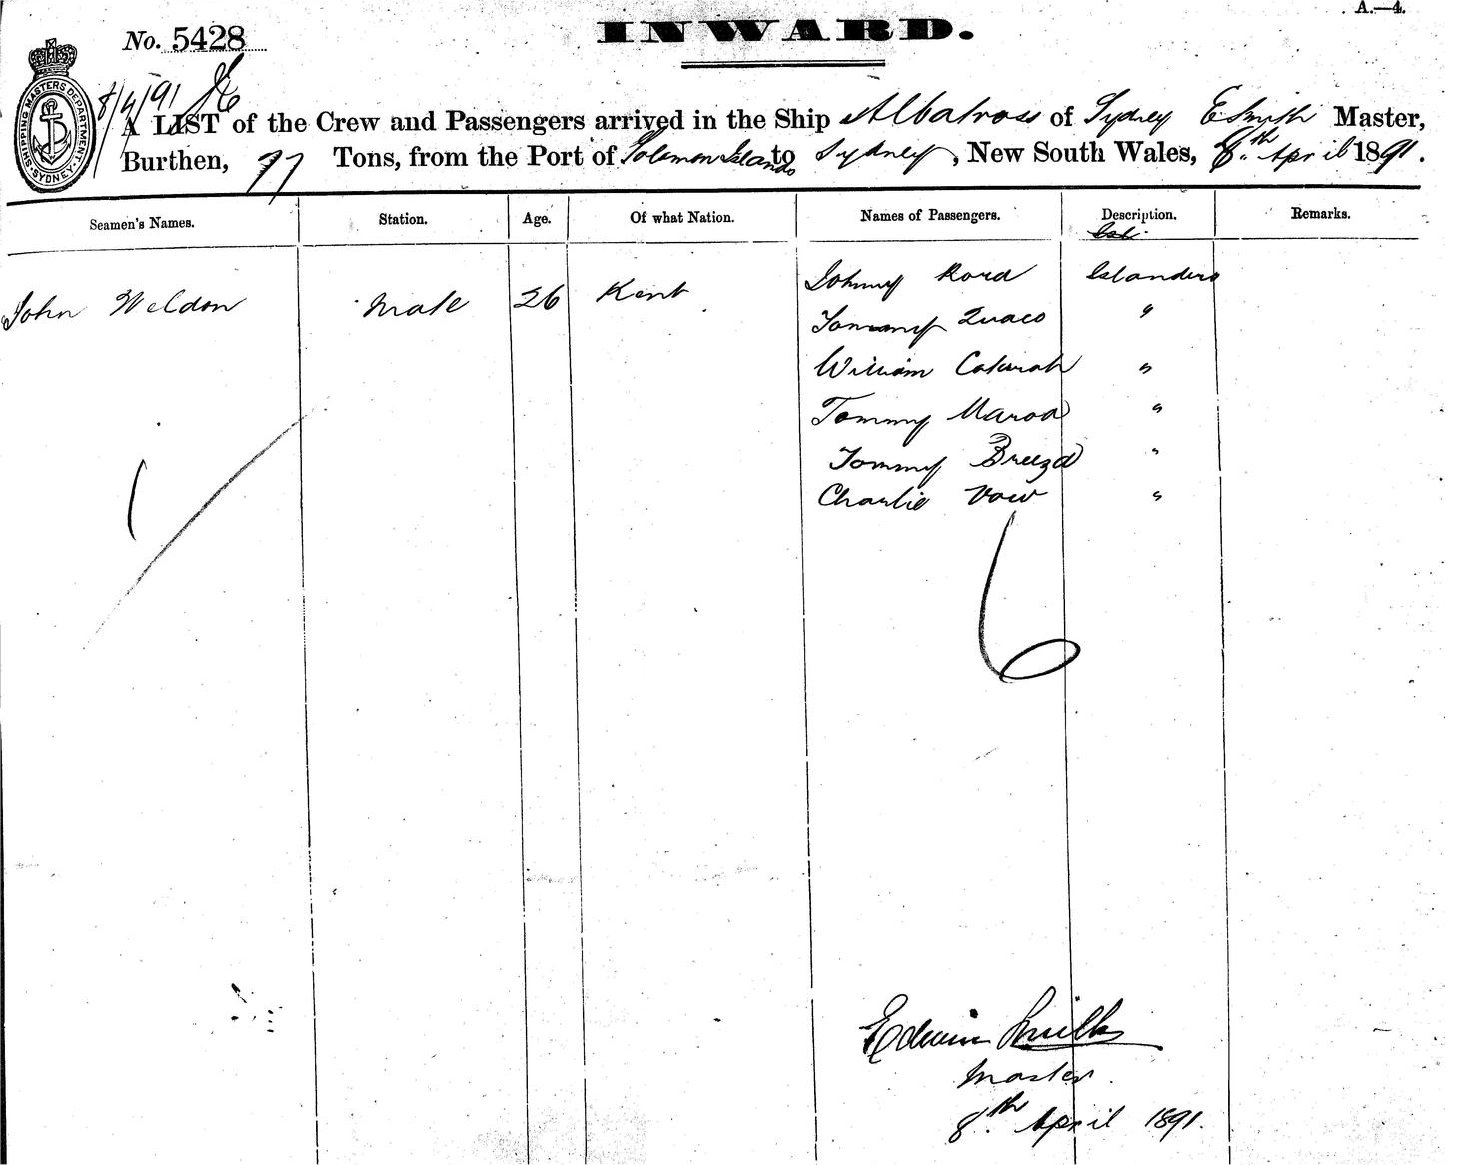 A.—4.
INWARD.
No. 5428
8/4/91
SHIPPING MASTERS DEPARTMENT. SYDNEY.
A LIST of the Crew and Passengers arrived in the Ship Albatross of Sydney E Smith Master,
Burthen, 77 Tons, from the Port of Solomon Islands to Sydney, New South Wales, 8th April 1891.
Seamen's Names. Station. Age. Of what Nation. Names of Passengers. Description. Remarks.
Johnny Islanders
John Weldon Mate 26 Kent
Tommy Quaco "
William "
Tommy "
Tommy "
Charlie "
1
6
Edwin Smith
Master
8th April 1891.